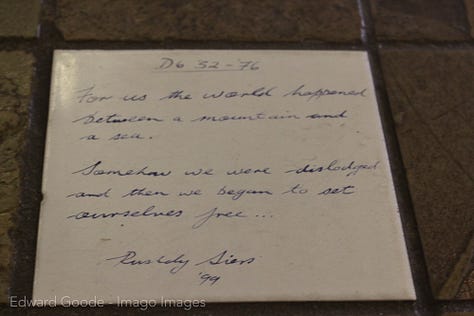 D6 32-'76
For us the world happened
between a mountain and
a sea.
Somehow we were dislodged
and then we began to set
ourselves free...
Rustdy Siers
'99
Edward Goode - Imago Images